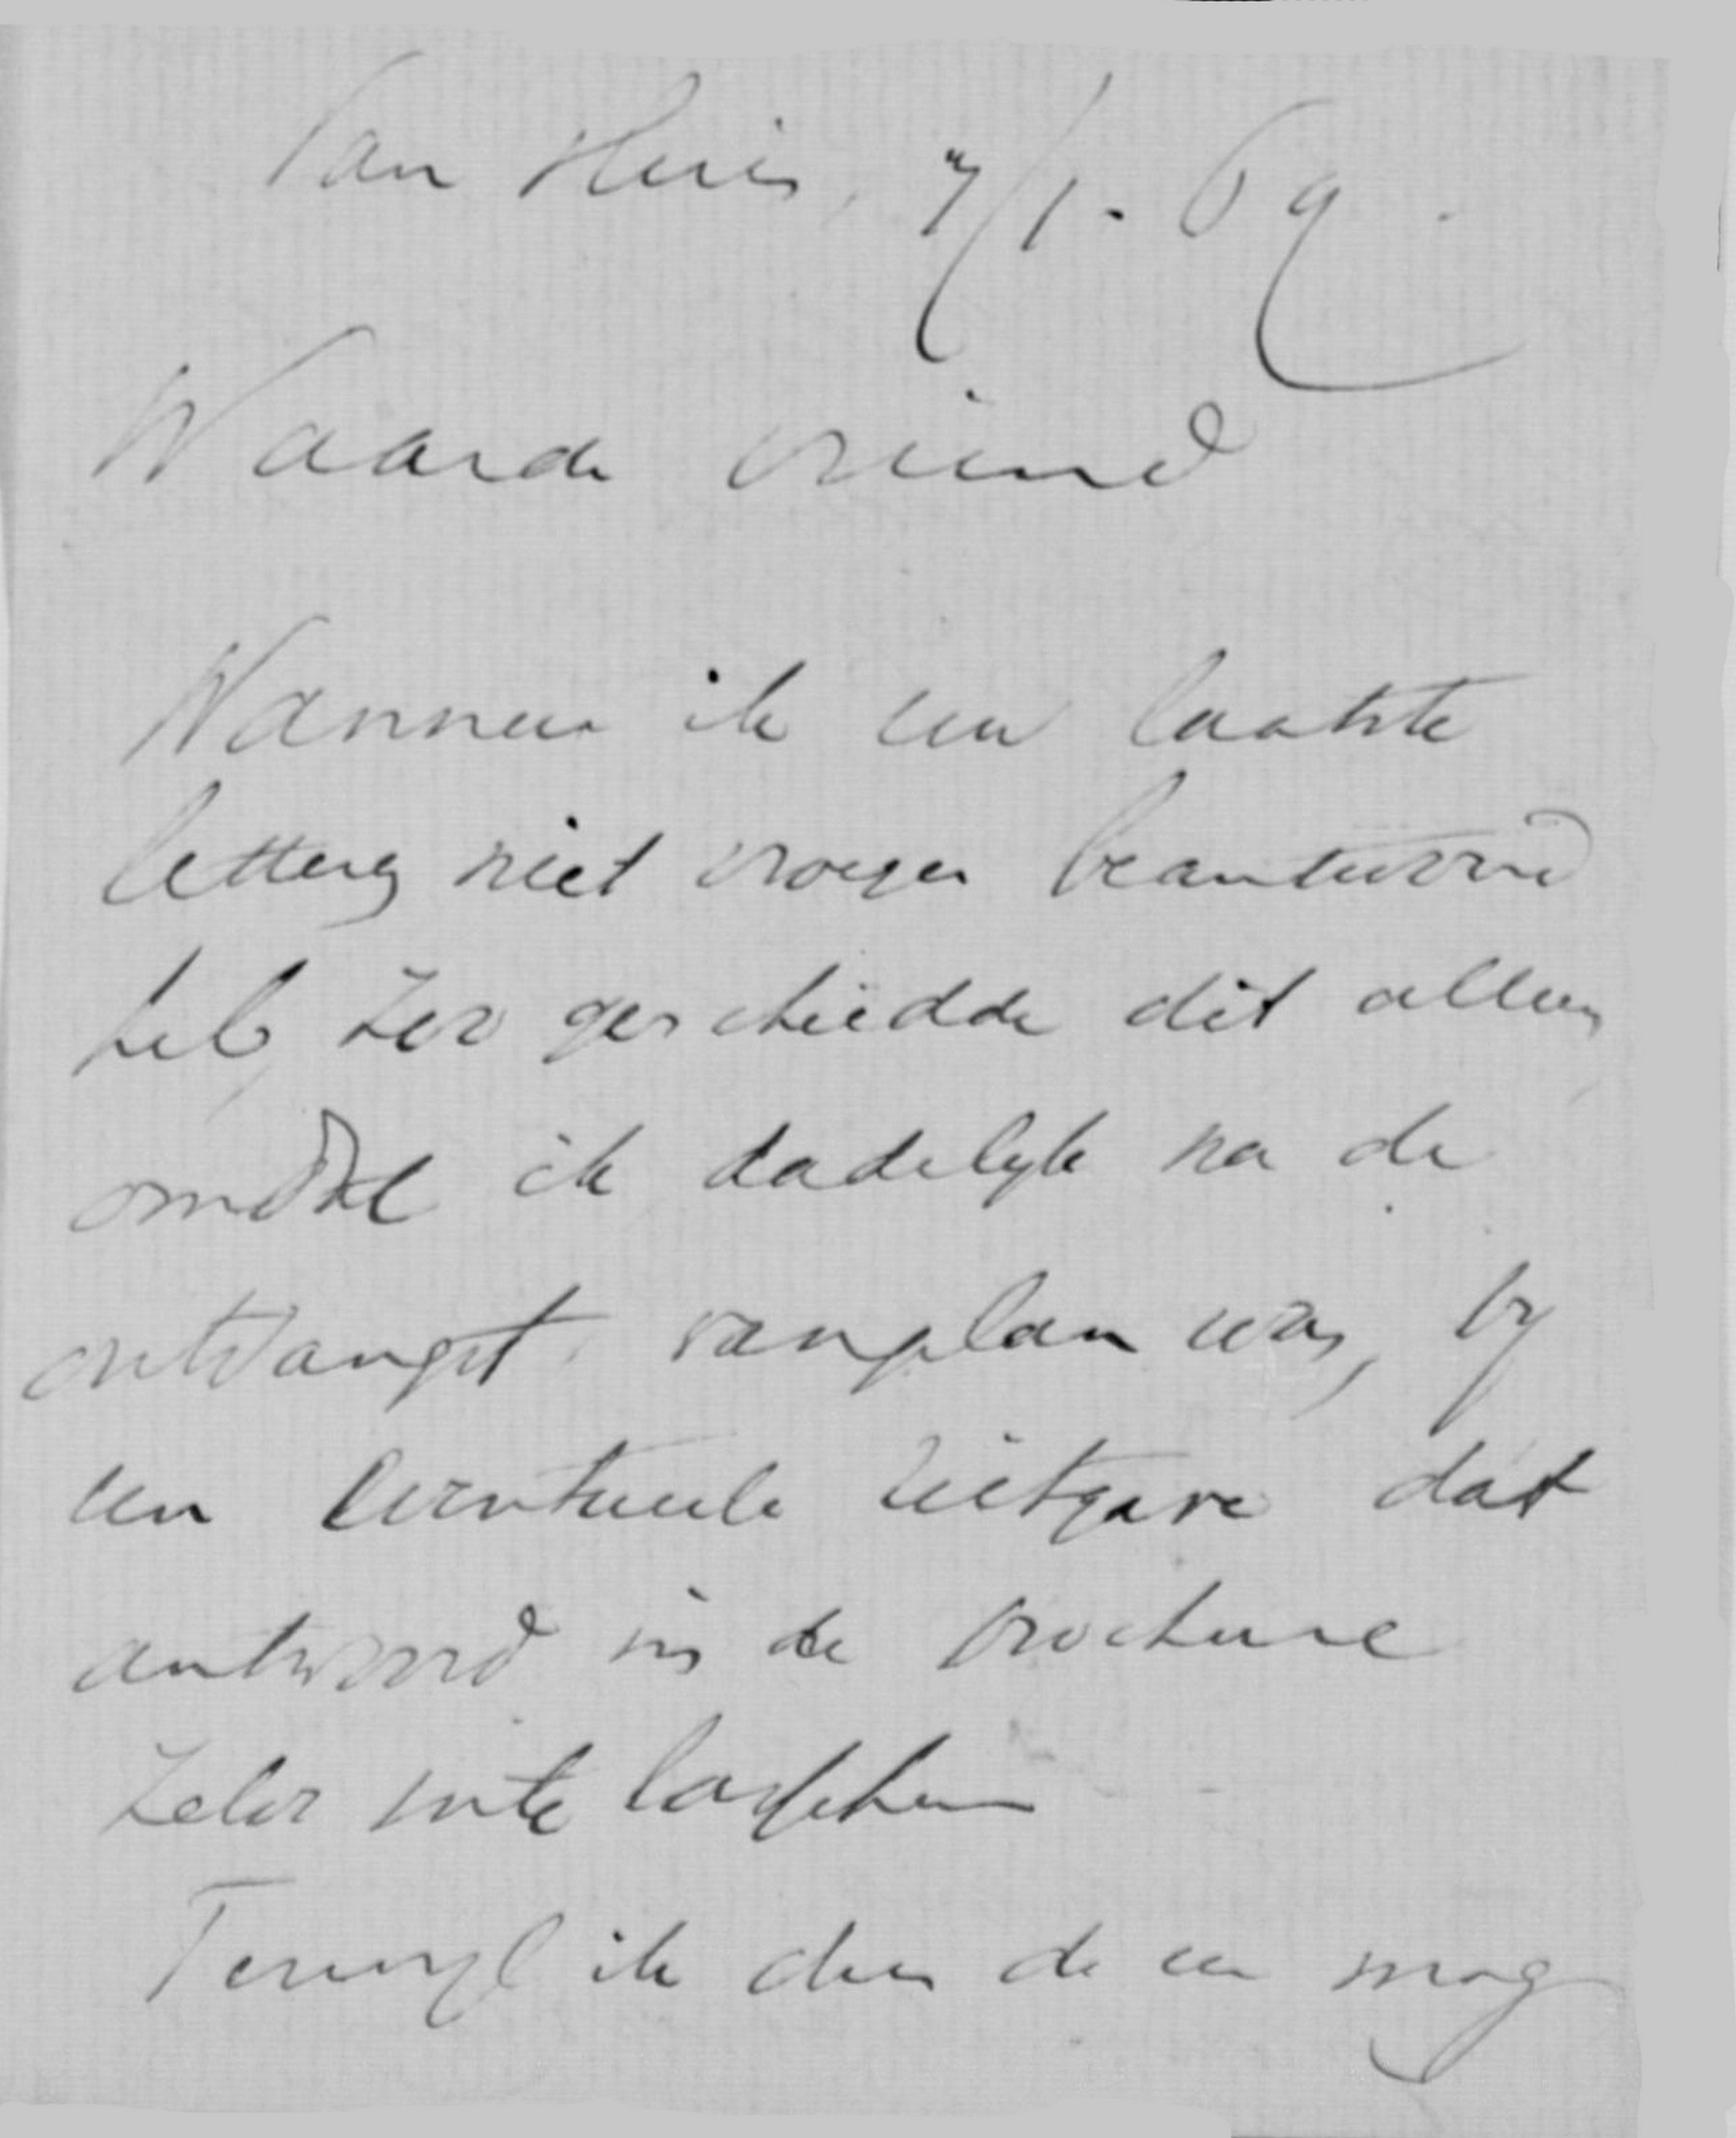 Van Huis, 7/1. 69.
Waarde vriend
Wanneer ik uw laatste
letteren niet vroeger beantwoord
heb, zoo geschiedde dit alleen
omdat ik dadelyk na de
ontvangst vanplan was, by
een eventueele uitgave dat
antwoord in de brochure
zelve inte lasschen
Terwyl ik dus de eer mog